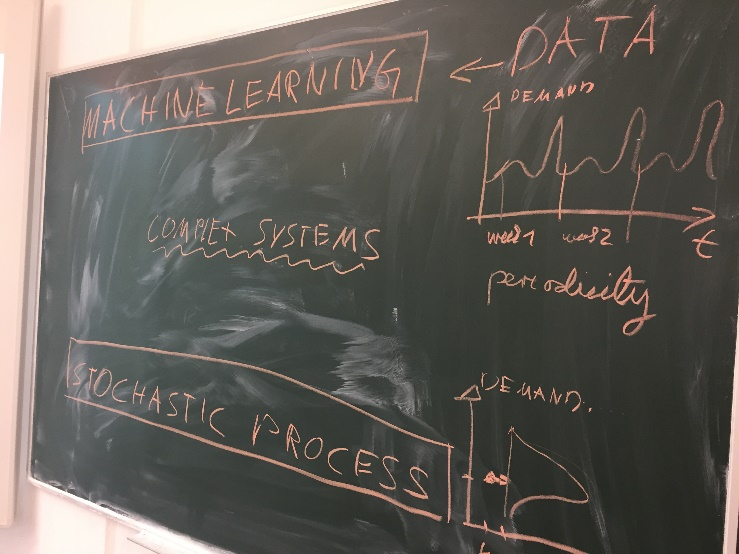 MACHINE LEARNING
← DATA
DEMAND
week1 week2
t
periodisity
COMPLEX SYSTEMS
STOCHASTIC PROCESS
DEMAND.